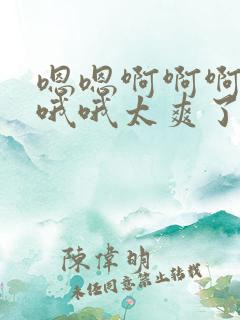 嗯嗯啊啊啊
哦哦太爽了
陳偉明
未经同意禁止转载